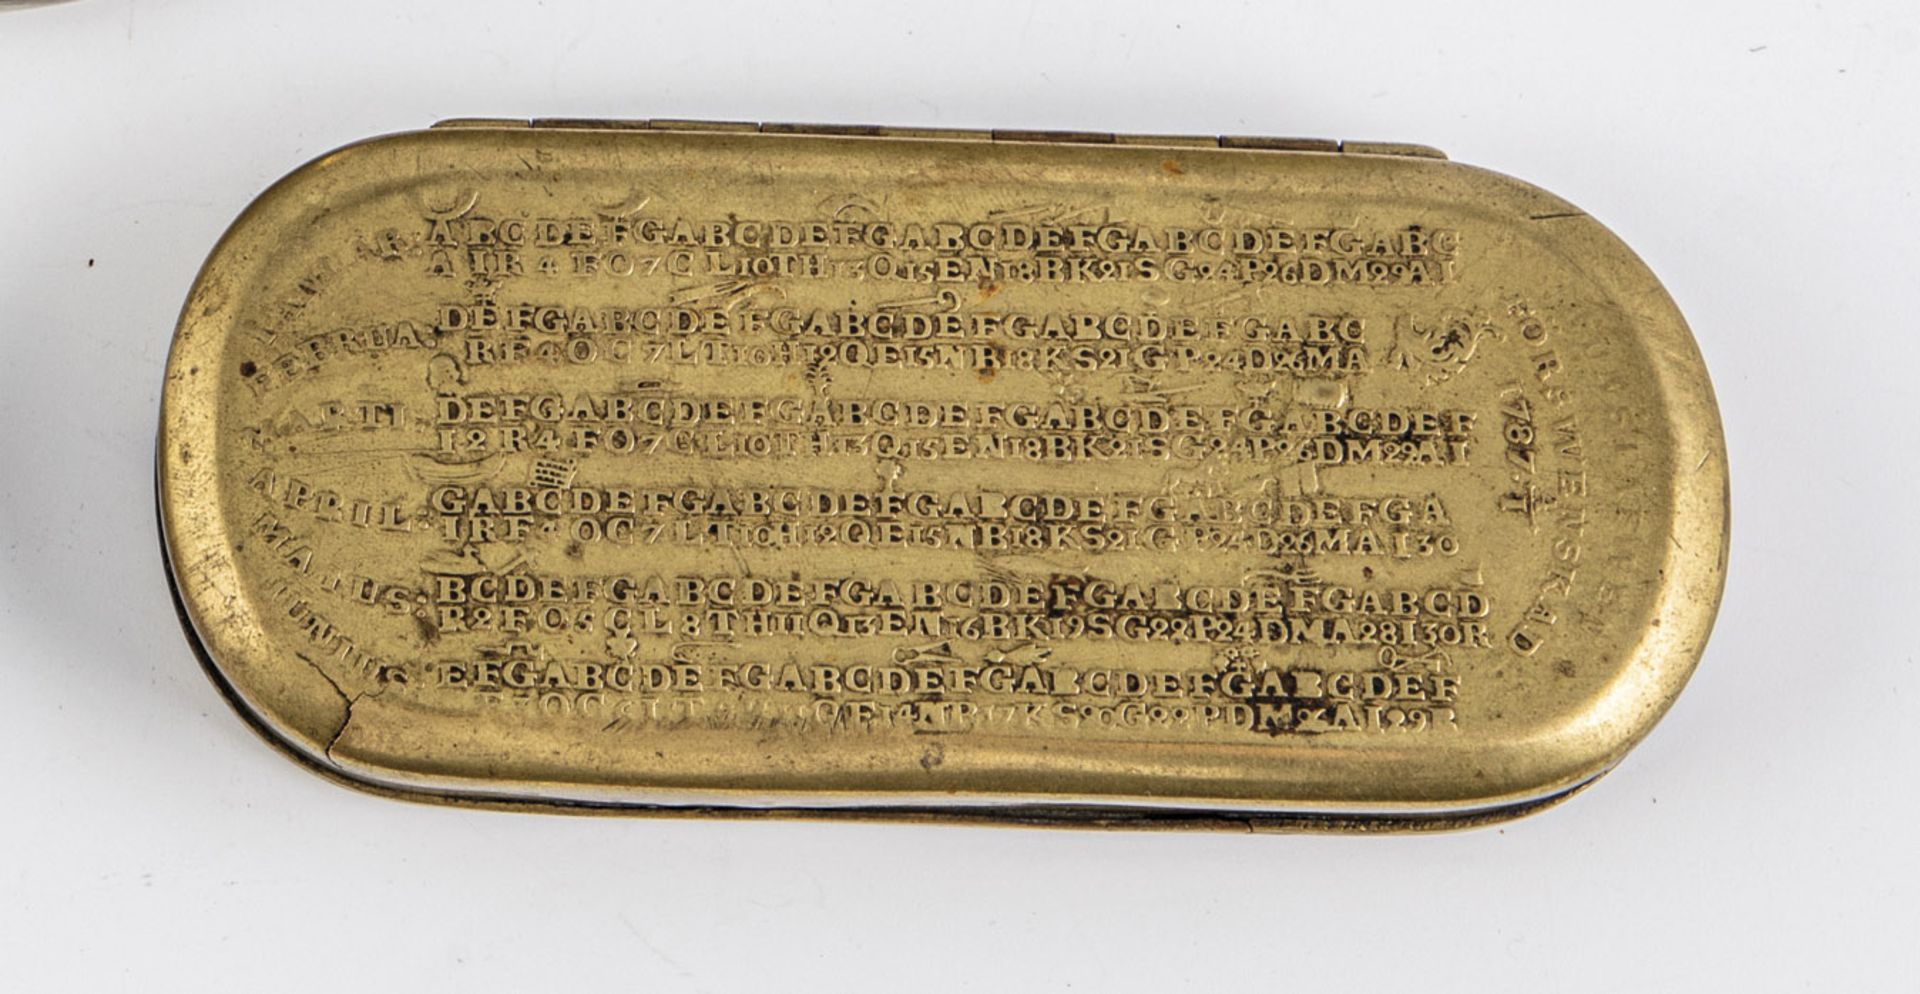 IANUAR:
ABCDEFGABCDEFGABCDEFGABCDEFGABC
AIR4FO7CL10TH13Q15EN18BK21SG24P26DM29AI
FEBRUA:
DEFGABCDEFGABCDEFGABCDEFGABC
RF4OC7LT10H12QE15NB18KS21GP24D26MA
MARTI
DEFGABCDEFGABCDEFGABCDEFGABCDEF
12R4FO7CL10TH13Q15EN18BK21SG24P26DM29AI
APRIL:
GABCDEFGABCDEFGABCDEFGABCDEFGA
IRF4OC7LT10H12QE15NB18KS21GP24D26MAI30
MAIUS:
BCDEFGABCDEFGABCDEFGABCDEFGABCD
R2FO5CL8TH11Q13EN16BK19SG22P24DMA28I30R
IUNIUS:
EFGABCDEFGABCDEFGABCDEFGABCDEF
14NB17KS20G22PDM26AI29R
FORSWERNSKAD
1787.